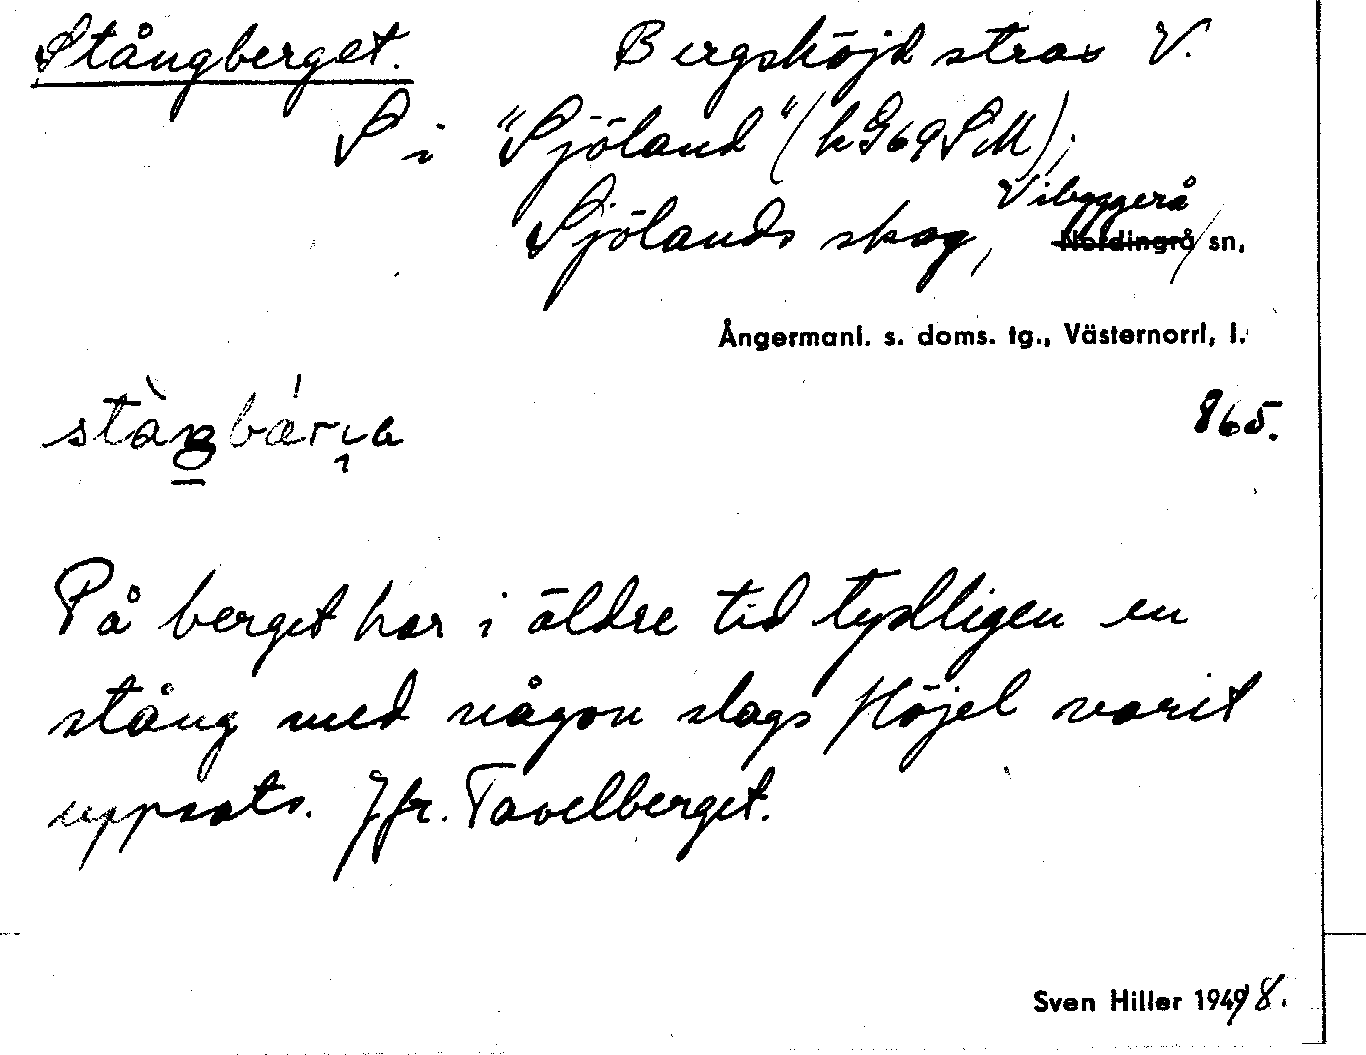 Stångberget. Bergshöjd strax V.
S i "Sjöland" (kG69SM);
Sjölands skog, Vibyggerå
Nordingrå sn,
Ångermanl. s. doms. tg., Västernorrl, l.
865.
På berget har i äldre tid tydligen en
stång med någon slags flöjel varit
uppsats. Jfr. Tavelberget.
Sven Hiller 1949 8.